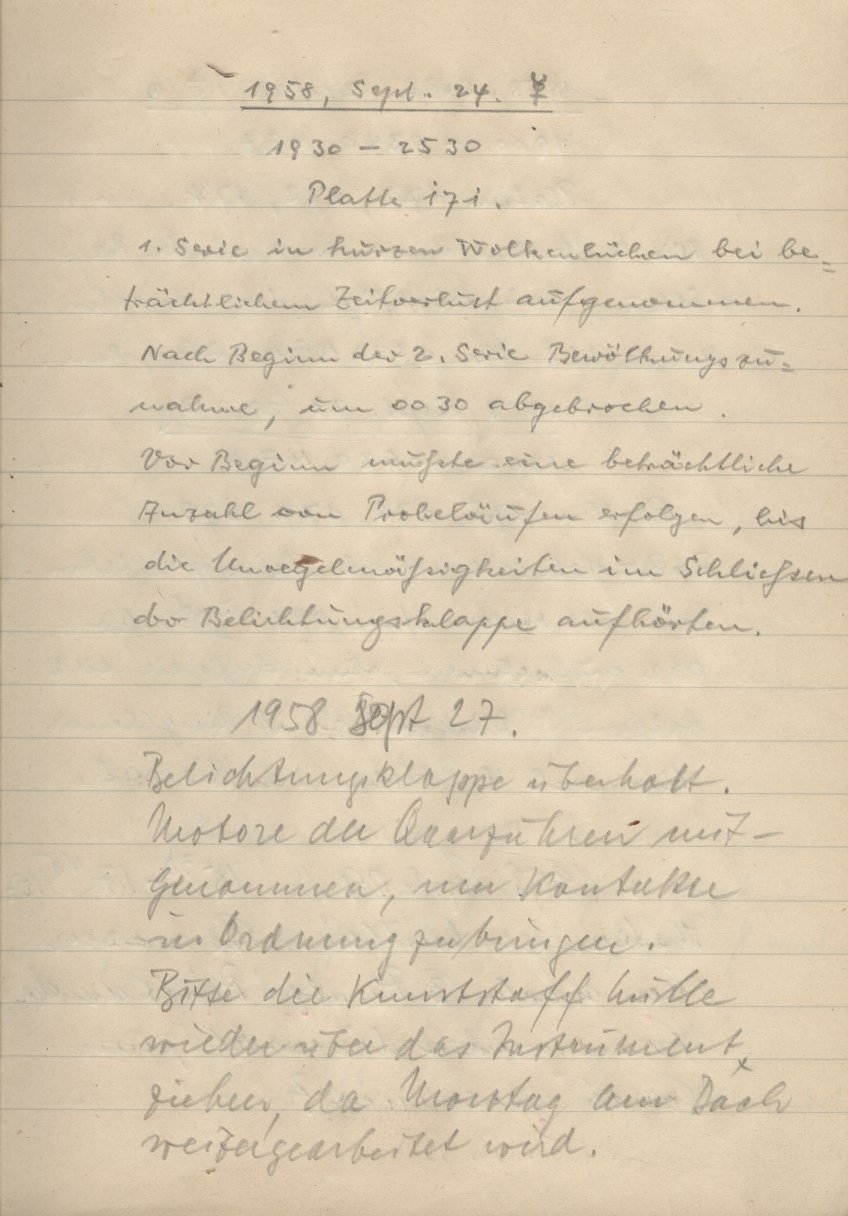 1958, Sept. 24. ☿
1930 — 2530
Platte 171.
1. Serie in kurzen Wolkenlücken bei be=
trächtlichem Zeitverlust aufgenommen.
Nach Beginn der 2. Serie Bewölkungszu=
nahme, um 0030 abgebrochen.
Vor Beginn mußte eine beträchtliche
Anzahl von Probeläufen erfolgen, bis
die Unregelmäßigkeiten im Schließsen
der Belichtungsklappe aufhörten.
1958 Sept 27.
Belichtungsklappe überholt.
Motore der mit-
genommen, um Kontakte
in Ordnung zu bringen.
Bitte die Kunststoff hülle
wieder über das Instrument
ziehen, da Montag am Dach
weitergearbeitet wird.